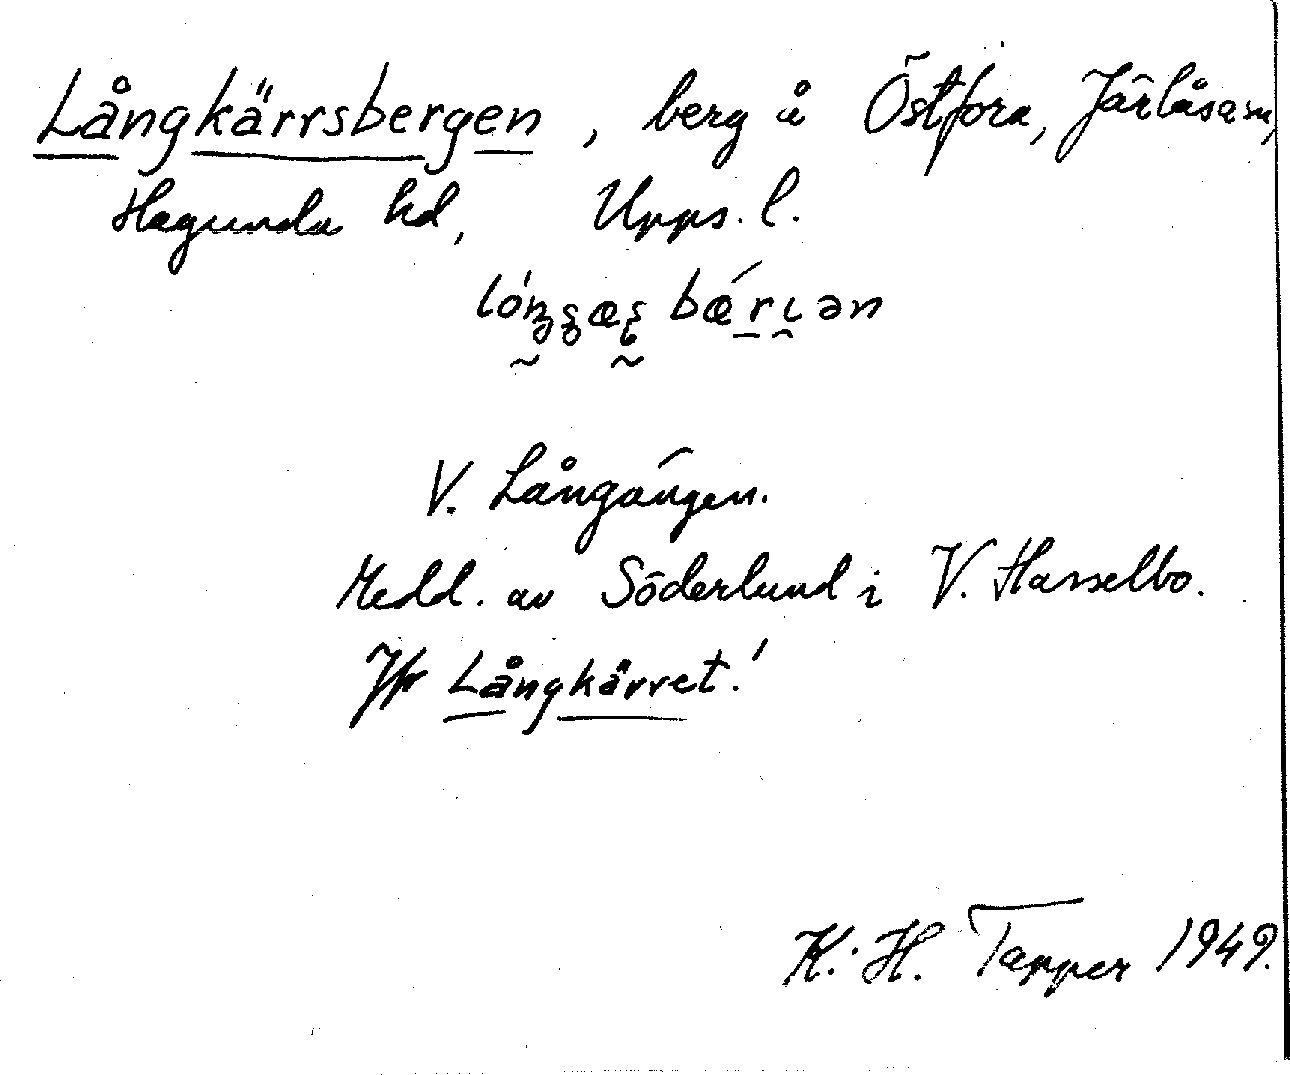 Långkärrsbergen, berg å Östfora, Järlåsa sn,
Hagunda hd, Upps. l.
V. Långängen.
Medd. av Söderlund i V. Hasselbo.
Jfr Långkärret!
K.-H. Tapper 1949.